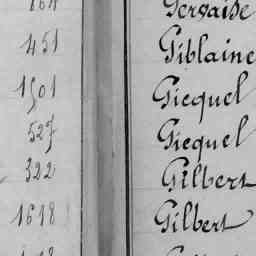 451 Giblaine
1501 Gicquel
527 Gicquel
322 Gilbert
1618 Gilbert